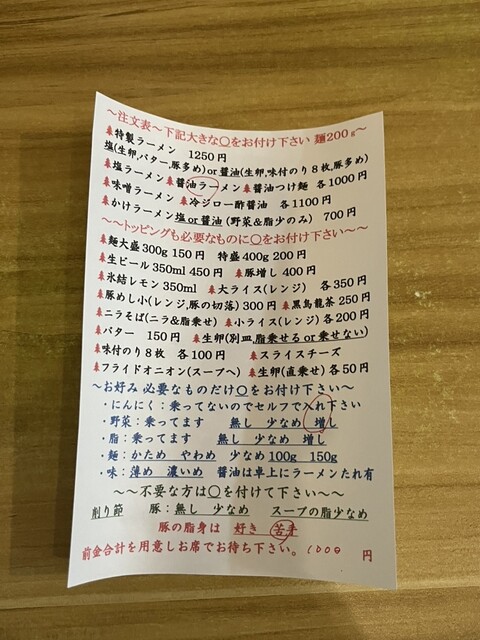 ～注文表～下記大きな〇をお付け下さい 麺200g～
特製ラーメン 1250円
塩(生卵,バター,豚多め)or醤油(生卵,味付のり8枚,豚多め)
塩ラーメン 醤油ラーメン 醤油つけ麺 各1000円
味噌ラーメン 冷ジロー酢醤油 各1100円
かけラーメン塩or醤油(野菜&脂少のみ) 700円
～～トッピングも必要なものに〇をお付け下さい～～
麺大盛300g150円 特盛400g200円
生ビール350ml450円 豚増し400円
氷結レモン350ml 大ライス(レンジ) 各350円
豚めし小(レンジ,豚の切落)300円 黒烏龍茶250円
ニラそば(ニラ&脂乗せ) 小ライス(レンジ)各200円
バター 150円 生卵(別皿,脂乗せるor乗せない)
味付のり8枚 各100円 スライスチーズ
フライドオニオン(スープへ) 生卵(直乗せ) 各50円
～お好み 必要なものだけ〇をお付け下さい～
・にんにく：乗ってないのでセルフで入れ下さい
・野菜：乗ってます 無し 少なめ 増し
・脂：乗ってます 無し 少なめ 増し
・麺：かため やわめ 少なめ100g 150g
・味：薄め 濃いめ 醤油は卓上にラーメンたれ有
～～不要な方は〇を付けて下さい～～
削り節 豚：無し 少なめ スープの脂少なめ
豚の脂身は 好き 苦手
前金合計を用意しお席でお待ち下さい。1000 円